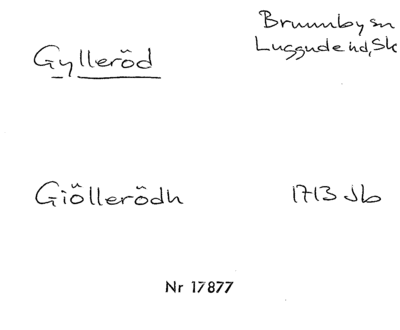 Gylleröd
Brunnby sn
Luggude hd, Sk
Giöllerödh
1713 Jb
Nr 17877